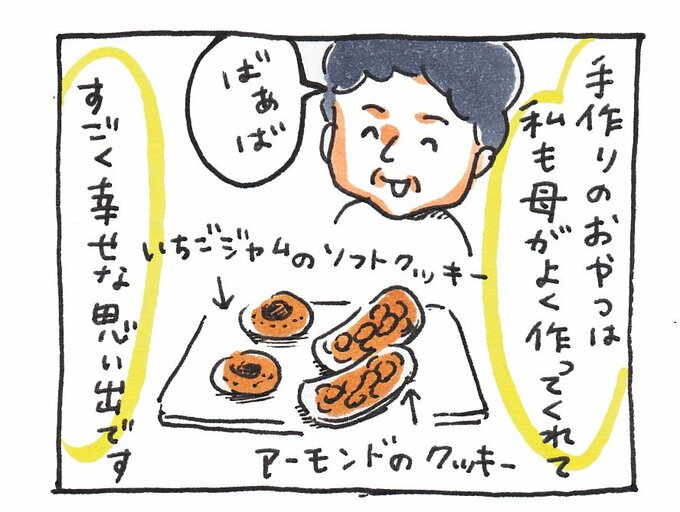 手作りのおやつは
私も母がよく作ってくれて
ばぁば
いちごジャムのソフトクッキー
アーモンドのクッキー
すごく幸せな思い出です